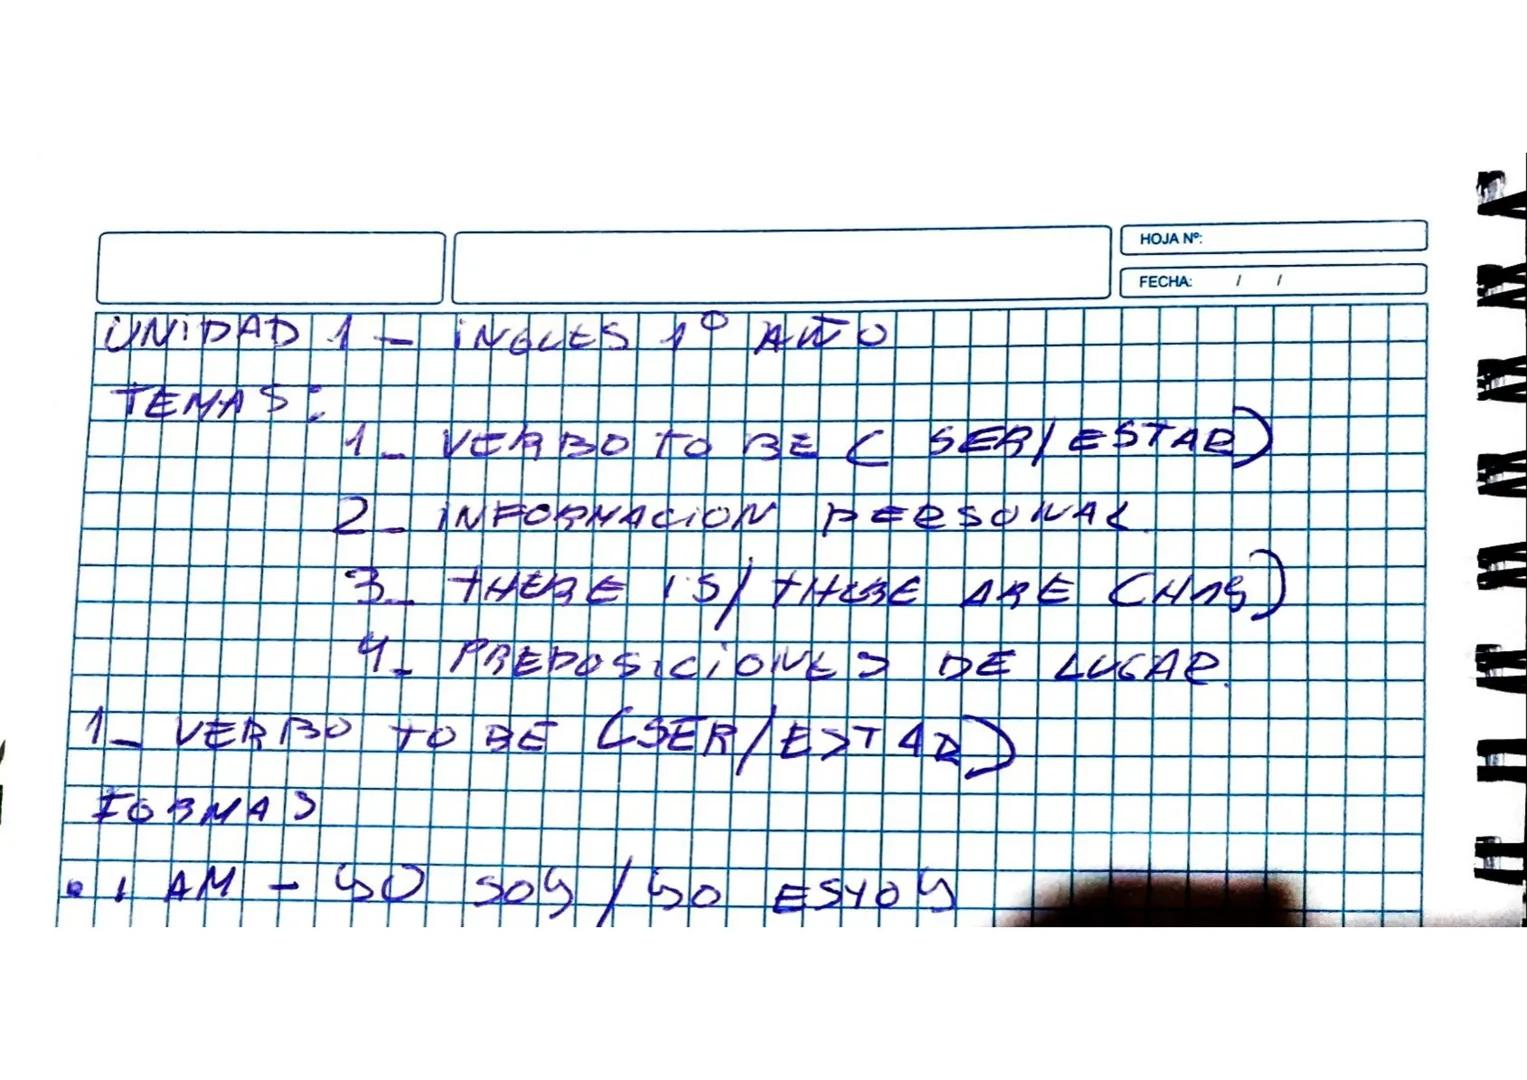 HOJA Nº:
FECHA: / /
UNIDAD 1 - INGLES 1º AÑO
TEMAS:
1_ VERBO TO BE (SER/ESTAR)
2_ INFORMACION PERSONAL
3_ THERE IS/THERE ARE (HAY)
4_ PREPOSICIONES DE LUGAR.
1_ VERBO TO BE (SER/ESTAR)
FORMAS
. I AM - YO SOY / YO ESTOY